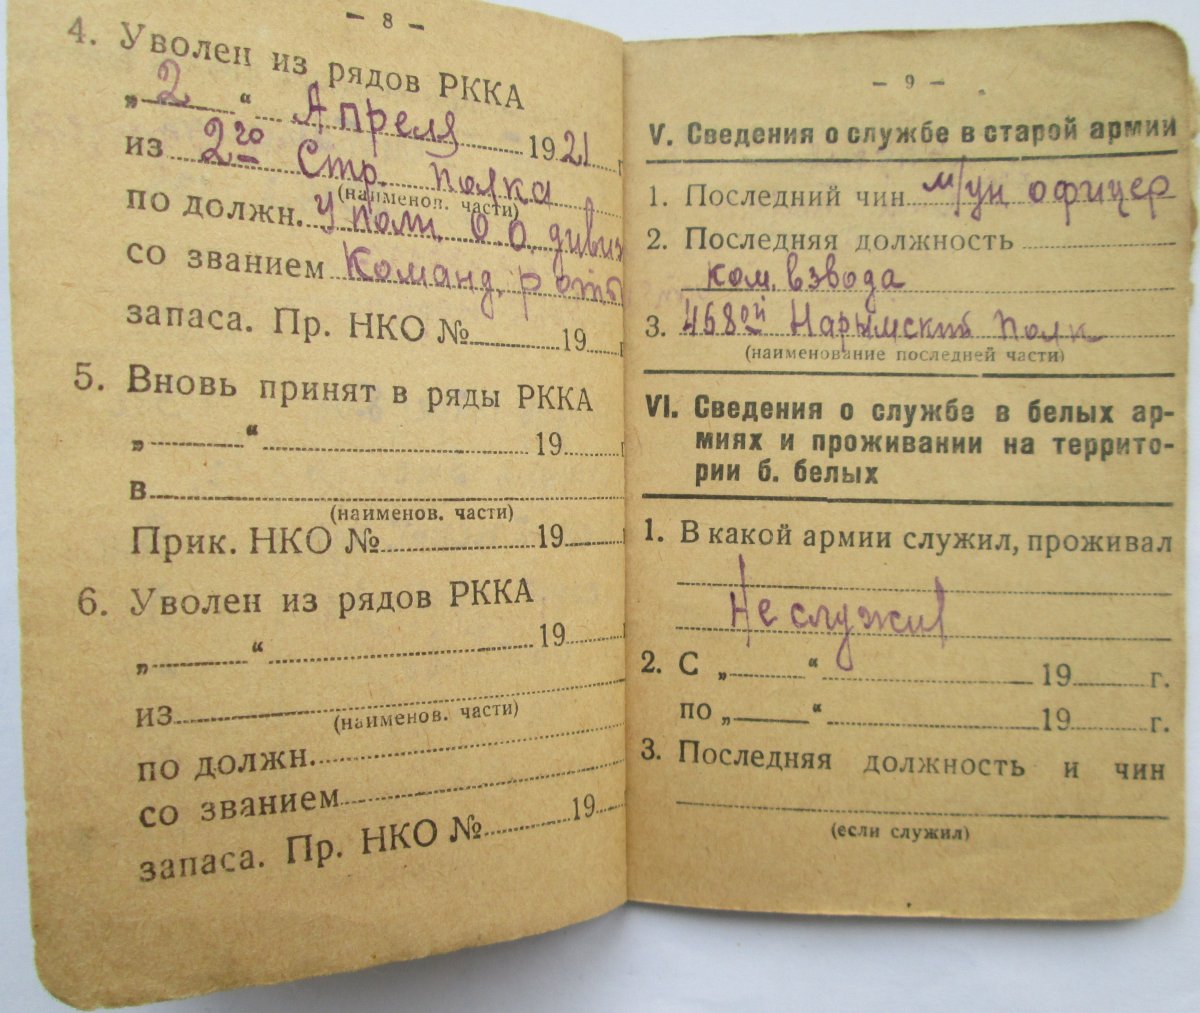 — 8 —
4. Уволен из рядов РККА
„ 2 “ Апреля 1921 г
из 2го Стр. полка
(наименов. части)
по должн. Упол. О.О. дивиз
со званием Команд. роты
запаса. Пр. НКО № 19
5. Вновь принят в ряды РККА
„ “ 19 г
в
(наименов. части)
Прик. НКО № 19
6. Уволен из рядов РККА
„ “ 19
из
(наименов. части)
по должн.
со званием
запаса. Пр. НКО № 19
— 9 —
V. Сведения о службе в старой армии
1. Последний чин м/ун офицер
2. Последняя должность
ком. взвода
3. 468ой Нарымский полк
(наименование последней части)
VI. Сведения о службе в белых ар-
миях и проживании на террито-
рии б. белых
1. В какой армии служил, проживал
Не служил
2. С „ “ 19 г.
по „ “ 19 г.
3. Последняя должность и чин
(если служил)